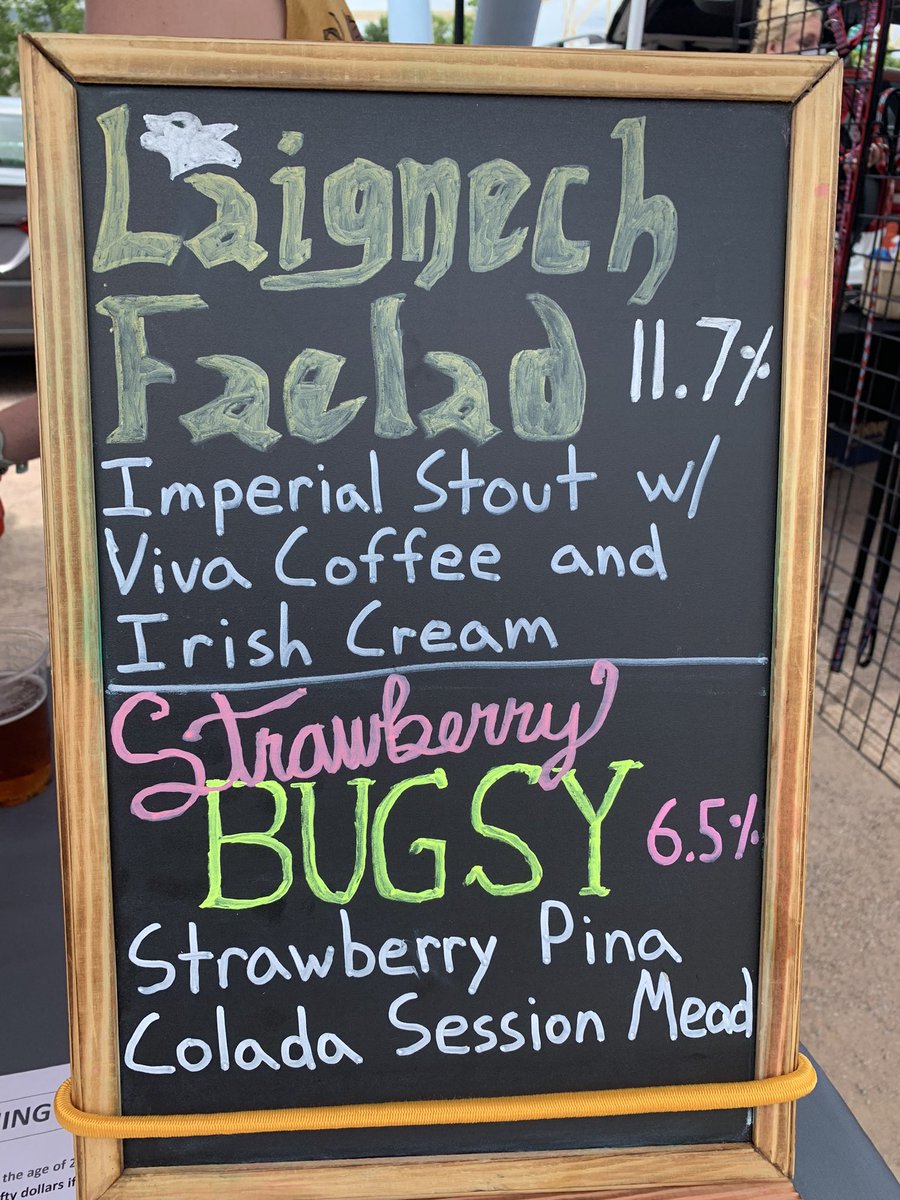 Laignech
Faelad 11.7%
Imperial Stout w/
Viva Coffee and
Irish Cream
Strawberry
BUGSY 6.5%
Strawberry Pina
Colada Session Mead
the age of
dollars if